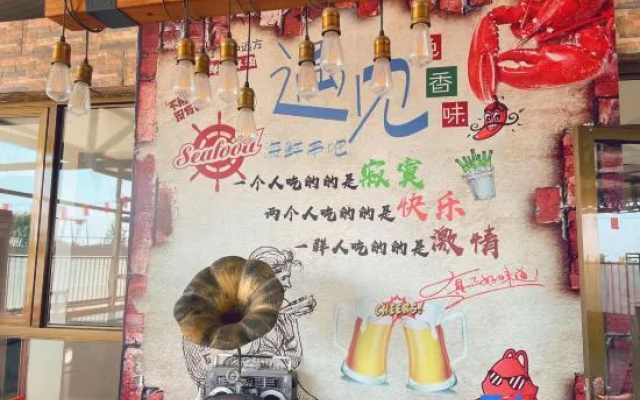 遇见
色
香
味
Seafood
海鲜串吧
一个人吃的的是寂寞
两个人吃的的是快乐
一群人吃的的是激情
真正好味道!
CHEERS!